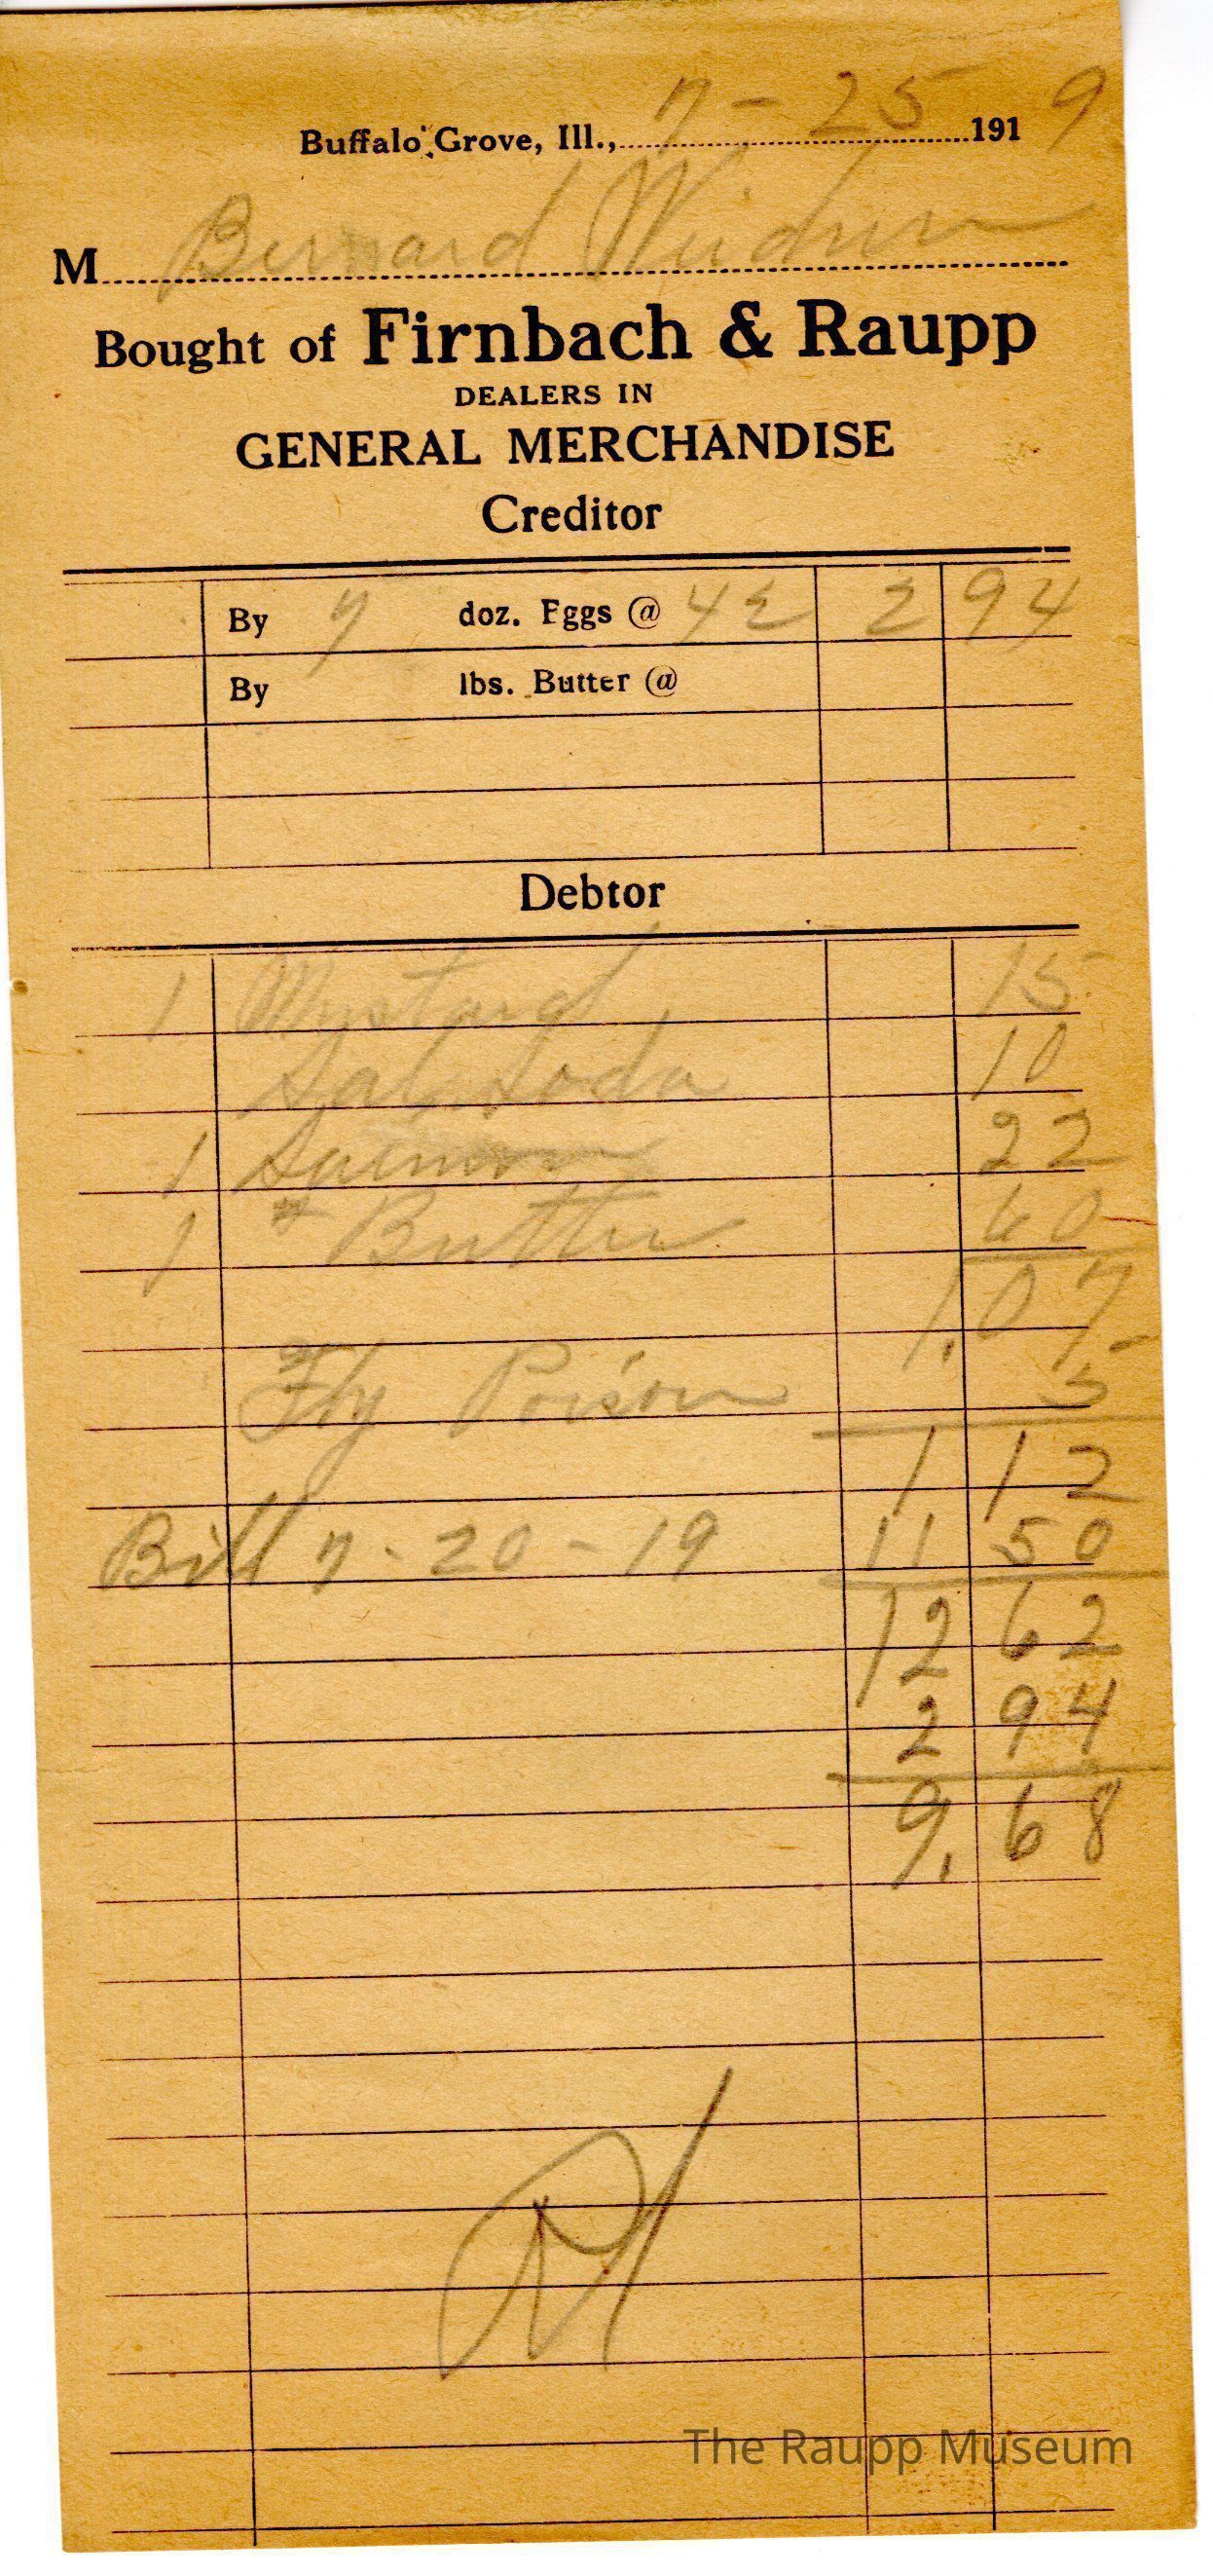 Buffalo Grove, Ill., 7 - 25 1919
M Bernard Weidner
Bought of Firnbach & Raupp
DEALERS IN
GENERAL MERCHANDISE
Creditor
By 7 doz. Eggs @ 42 2 94
By lbs. Butter @
Debtor
1 Mustard 15
Sal Soda 10
1 Salmon 22
1 # Butter 60
1.07
Fly Poison 5
1 12
Bill 7 - 20 - 19 11 50
12 62
2 94
9. 68
The Raupp Museum